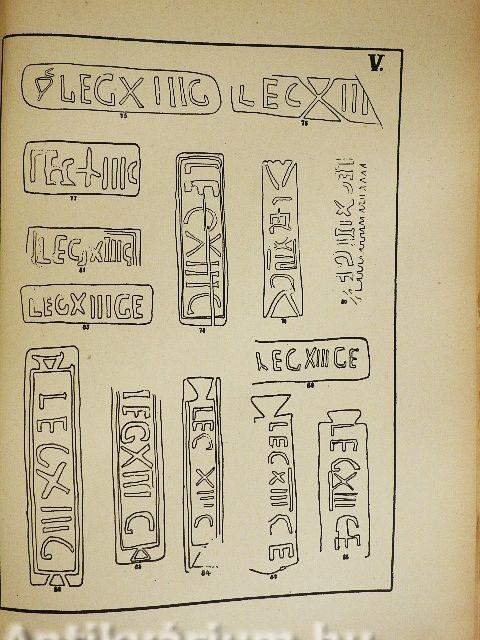 V.
LEGXIIIG
75
LECXIII
76
LEGXIIIG
77
LEGXIIIG
78
LEXIIIG
79
LEGXIIIG
81
LEGXIIIGE
83
LEGXIIIGE
LEGXIIIG
LEGXIIIG
LEGXIIIG
84
LEGXIIIGE
LEGXIIIGE
Antikvárium.hu